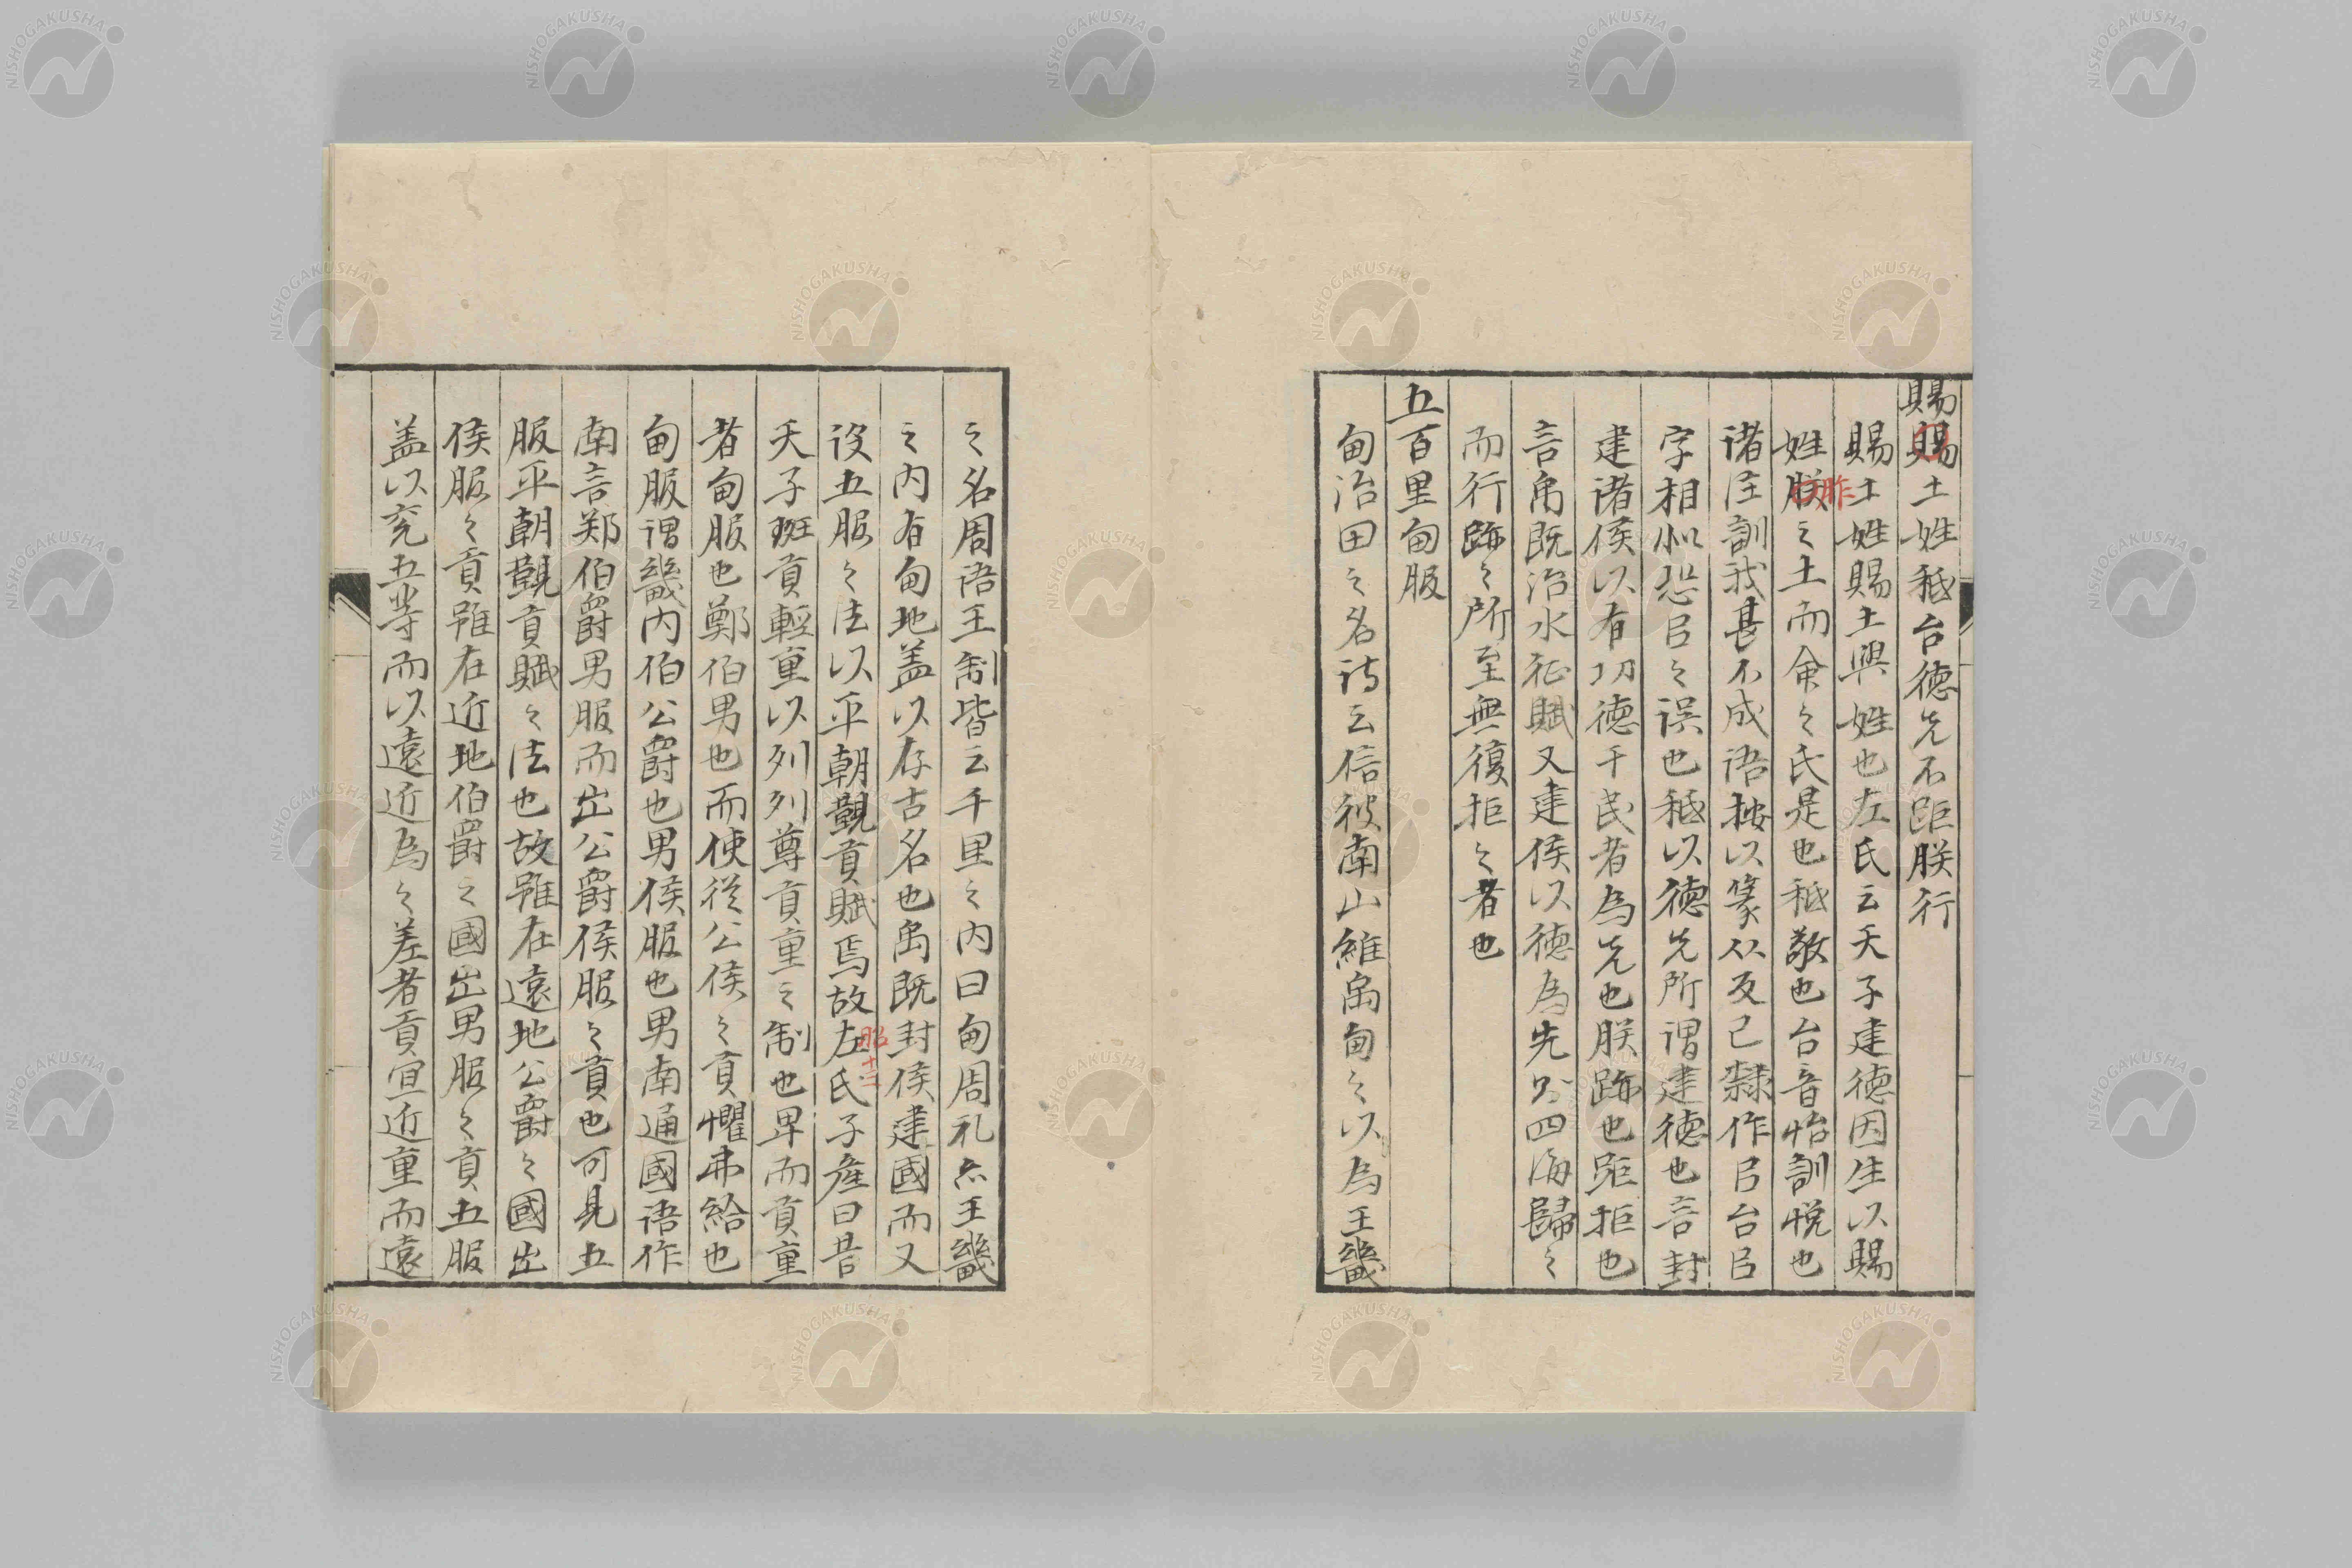 賜賜土姓秪台德先不距朕行
賜土姓賜土與姓也左氏云天子建德因生以賜
姓朕之土而命々氏是也秪敬也台音怡訓悅也
胙
諸注訓我甚不成语按以篆从反已隸作㠯台㠯
字相似恐㠯々误也秪以德先所谓建德也言封
建诸侯以有功德于民者為先也朕跡也距拒也
言禹既治水征賦又建侯以德為先则四海歸々
而行跡々所至無復拒々者也
五百里甸服
甸治田之名詩云信彼南山維禹甸々以為王畿
之名周语王制皆云千里之内曰甸周礼亦王畿
之内有甸地盖以存古名也禹既封侯建國而又
设五服々法以平朝觀貢賦焉故左氏子產曰昔
昭十三
天子班貢輕重以列列尊貢重之制也卑而貢重
者甸服也鄭伯男也而使從公侯々貢懼弗給也
甸服谓畿内伯公爵也男侯服也男南通國语作
南言郑伯爵男服而出公爵侯服々貢也可見五
服平朝觀貢賦々法也故雖在遠地公爵々國出
侯服々貢雖在近地伯爵之國出男服々貢五服
盖以充五等而以遠近為々差者貢宜近重而遠